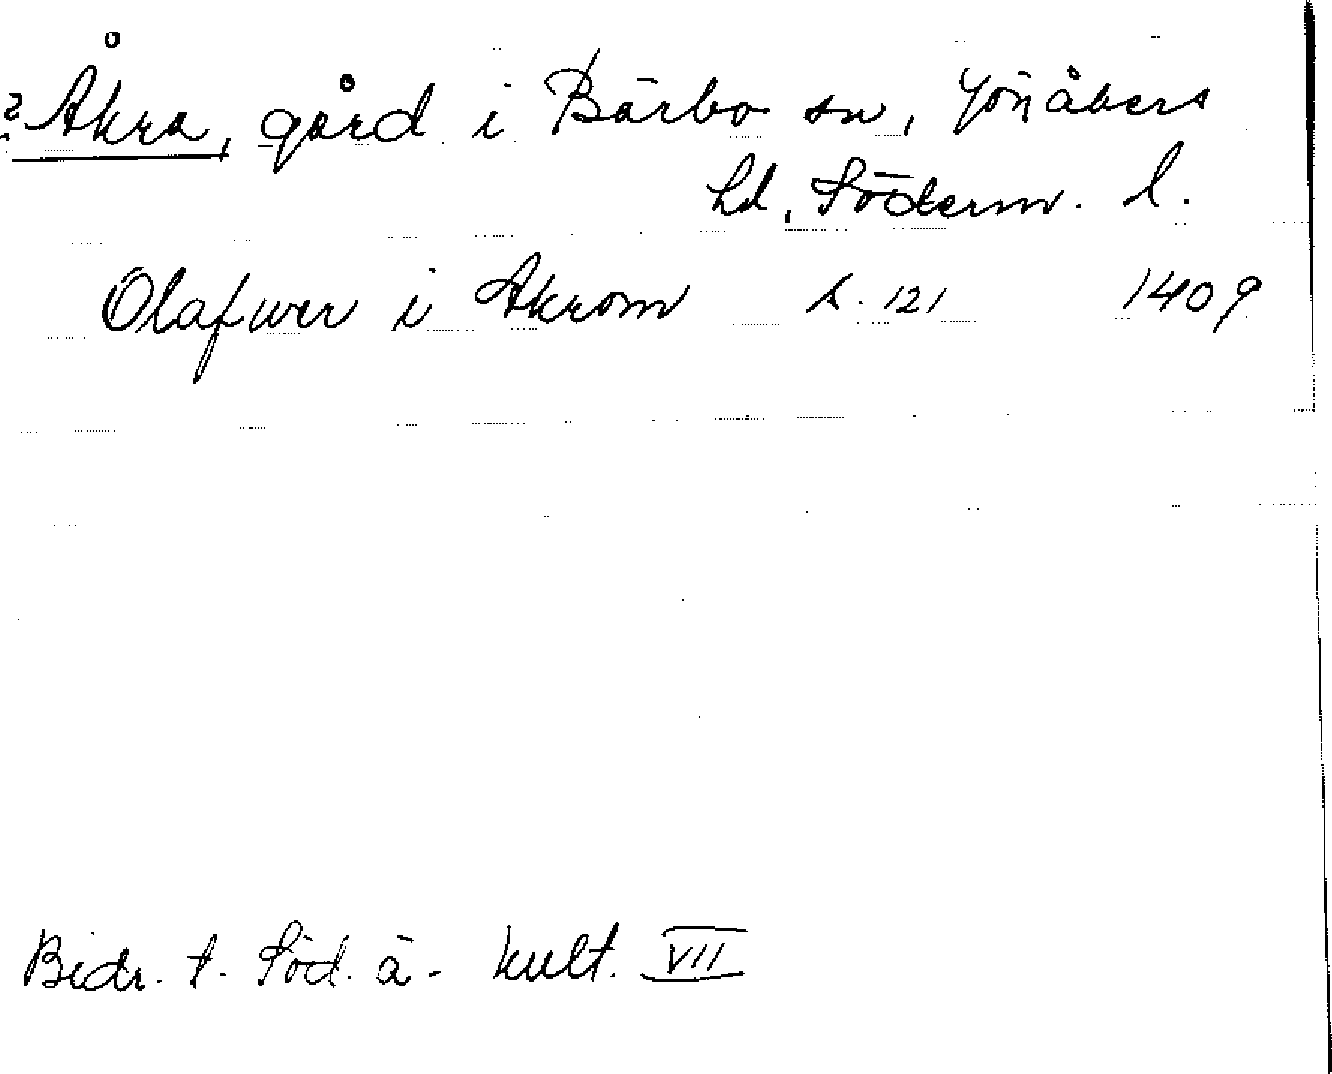 ? Åkra, gård i Bärbo sn, Jönåkers
hd, Söderm. l.
Olafwer i Akrom s. 121 1409
Bidr. t. Söd. ä. kult. VII